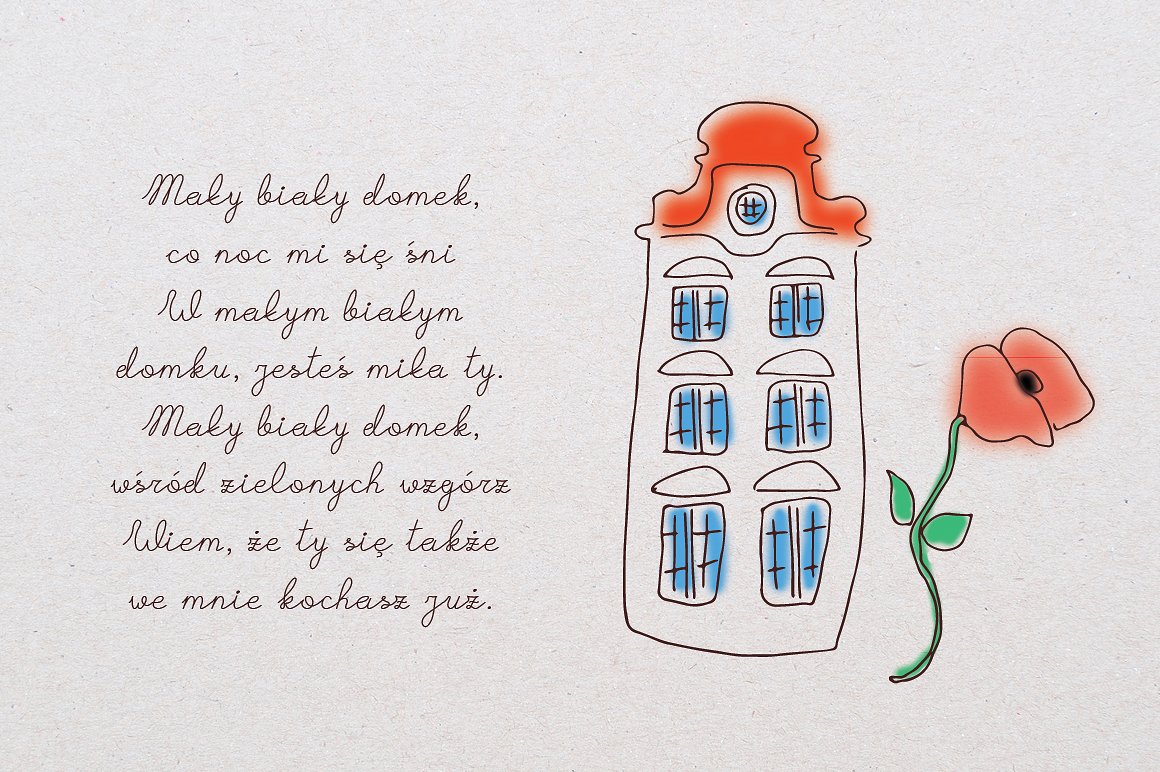 Mały biały domek,
co noc mi się śni
W małym białym
domku, jesteś miła ty.
Mały biały domek,
wśród zielonych wzgórz
Wiem, że ty się także
we mnie kochasz już.